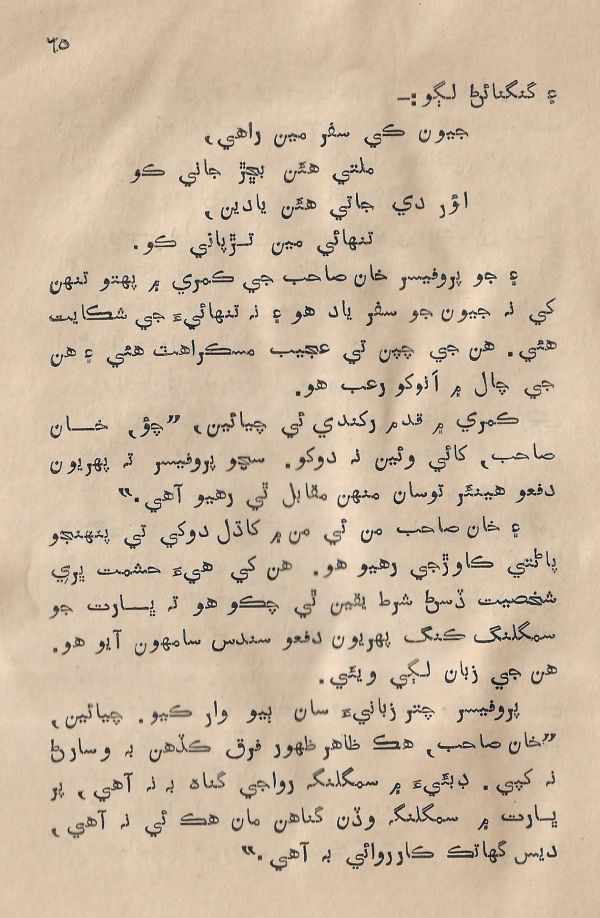 ٦٥
۽ گنگنائڻ لڳو:—
جيون کي سفر مين راهي،
ملتي هئن بڇڙ جاني کو
اؤر دي جاتي هئن يادين،
تنهائي مين تــڙپاني کو.
۽ جو پروفيسر خان صاحب جي ڪمري ۾ پهتو تنهن
کي نہ جيون جو سفر ياد هو ۽ نہ تنهائيءَ جي شڪايت
هئي. هن جي چپن تي عجيب مسڪراهٽ هئي ۽ هن
جي چال ۾ اَنوکو رعب هو.
ڪمري ۾ قدم رکندي ئي چيائين، ”چؤ، خــان
صاحب، کائي وئين نہ دوکو. سڄو پروفيسر تہ پهريون
دفعو هينئر توسان منهن مقابل ٿي رهيو آهي.“
۽ خان صاحب من ئي من ۾ کاڌل دوکي تي پنهنجو
پاڻتي ڪاوڙجي رهيو هو. هن کي هيءَ حشمت ڀري
شخصيت ڏسڻ شرط يقين ٿي چڪو هو تہ ڀــارت جو
سمگلنگ ڪنگ پهريون دفعو سندس سامهون آيو هو.
هن جي زبان لڳي ويئي.
پروفيسر چتر زبانيءَ سان ٻيو وار ڪيو. چيائين،
”خان صاحب، هڪ ظاهر ظهور فرق ڪڏهن بہ وسارڻ
نہ کپي. دبئيءَ ۾ سمگلنگہ رواجي گناه بہ نہ آهي، پر
ڀــارت ۾ سمگلنگہ وڏن گناهن مان هڪ ئي نہ آهي،
ديس گهاتڪ ڪارروائي بہ آهي.“